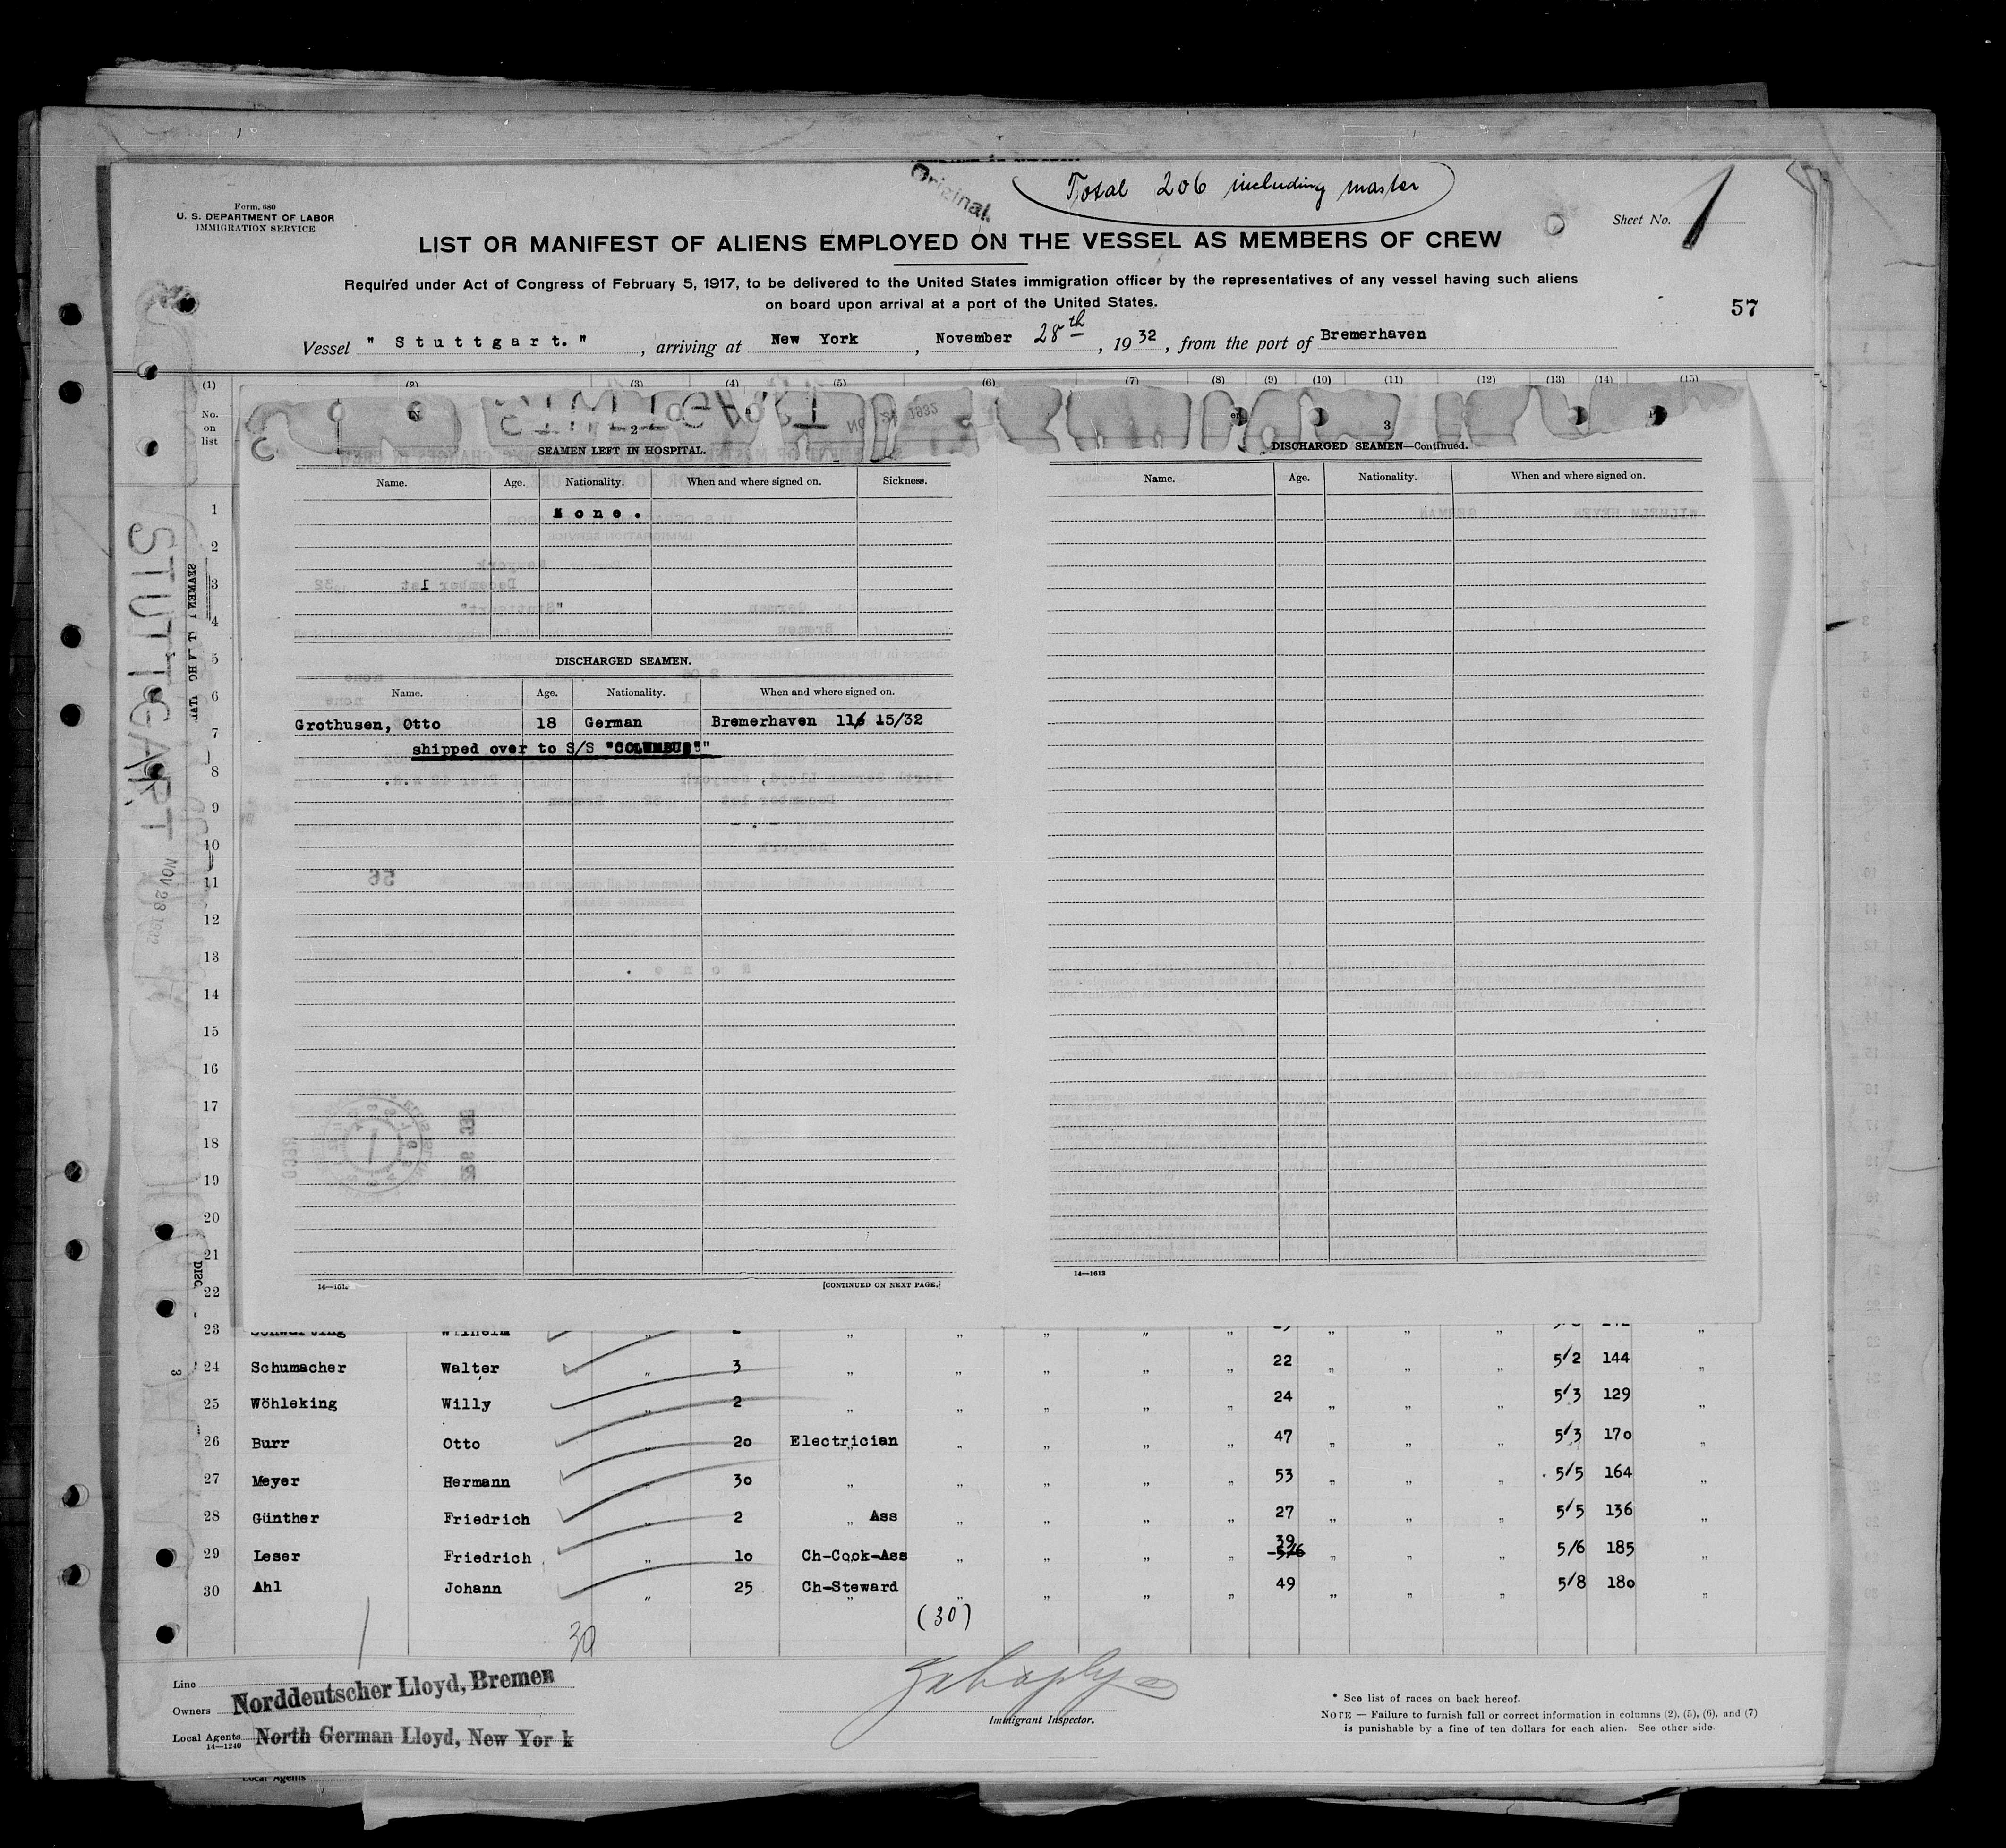 Original.
Total 206 including master
Form. 680
U. S. DEPARTMENT OF LABOR
IMMIGRATION SERVICE
Sheet No. 1
LIST OR MANIFEST OF ALIENS EMPLOYED ON THE VESSEL AS MEMBERS OF CREW
Required under Act of Congress of February 5, 1917, to be delivered to the United States immigration officer by the representatives of any vessel having such aliens
on board upon arrival at a port of the United States.
57
Vessel " Stuttgart. " , arriving at New York , November 28th , 1932 , from the port of Bremerhaven
(1) (2) (3) (4) (5) (6) (7) (8) (9) (10) (11) (12) (13) (14) (15)
No.
on
list
2
SEAMEN LEFT IN HOSPITAL.
Name. Age. Nationality. When and where signed on. Sickness.
None.
DISCHARGED SEAMEN.
Name. Age. Nationality. When and where signed on.
Grothusen, Otto 18 German Bremerhaven 11/ 15/32
shipped over to S/S "COLUMBUS"
[CONTINUED ON NEXT PAGE.]
3
DISCHARGED SEAMEN—Continued.
Name. Age. Nationality. When and where signed on.
14—1613
STUTTGART
NOV 28 1932
1
2
3
4
5
6
7
8
9
10
11
12
13
14
15
16
17
18
19
20
21
22
23 Wilhelm
24 Schumacher Walter „ 3 „ „ „ „ „ 22 „ „ „ 5/2 144 „
25 Wöhleking Willy „ 2 „ „ „ „ „ 24 „ „ „ 5/3 129 „
26 Burr Otto „ 20 Electrician „ „ „ „ 47 „ „ „ 5/3 170 „
27 Meyer Hermann 30 „ „ „ „ „ 53 „ „ „ 5/5 164 „
28 Günther Friedrich „ 2 „ Ass „ „ „ „ 27 „ „ „ 5/5 136 „
29 Leser Friedrich „ 10 Ch-Cook-Ass „ „ „ „ 39 5/6 „ „ „ 5/6 185 „
30 Ahl Johann „ 25 Ch-Steward „ „ „ „ 49 „ „ „ 5/8 180 „
(30)
30
Line
Owners Norddeutscher Lloyd, Bremen
Local Agents North German Lloyd, New York
14—1240
Immigrant Inspector.
* See list of races on back hereof.
NOTE — Failure to furnish full or correct information in columns (2), (5), (6), and (7)
is punishable by a fine of ten dollars for each alien. See other side.
Local Agents